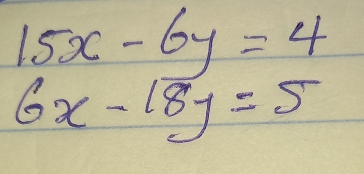 15x - 6y = 4
6x - 18y = 5